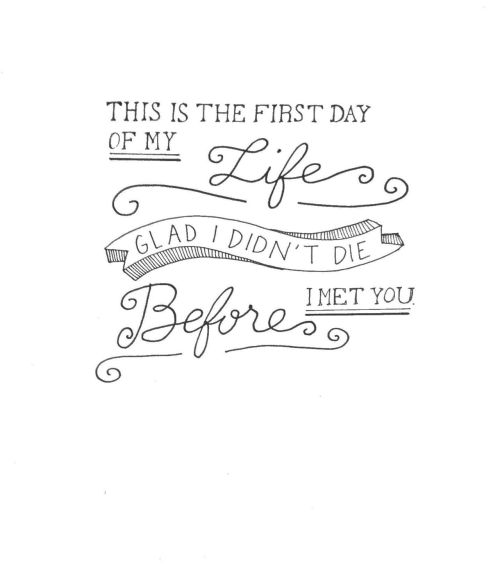 THIS IS THE FIRST DAY
OF MY
Life
GLAD I DIDN'T DIE
Before
I MET YOU.